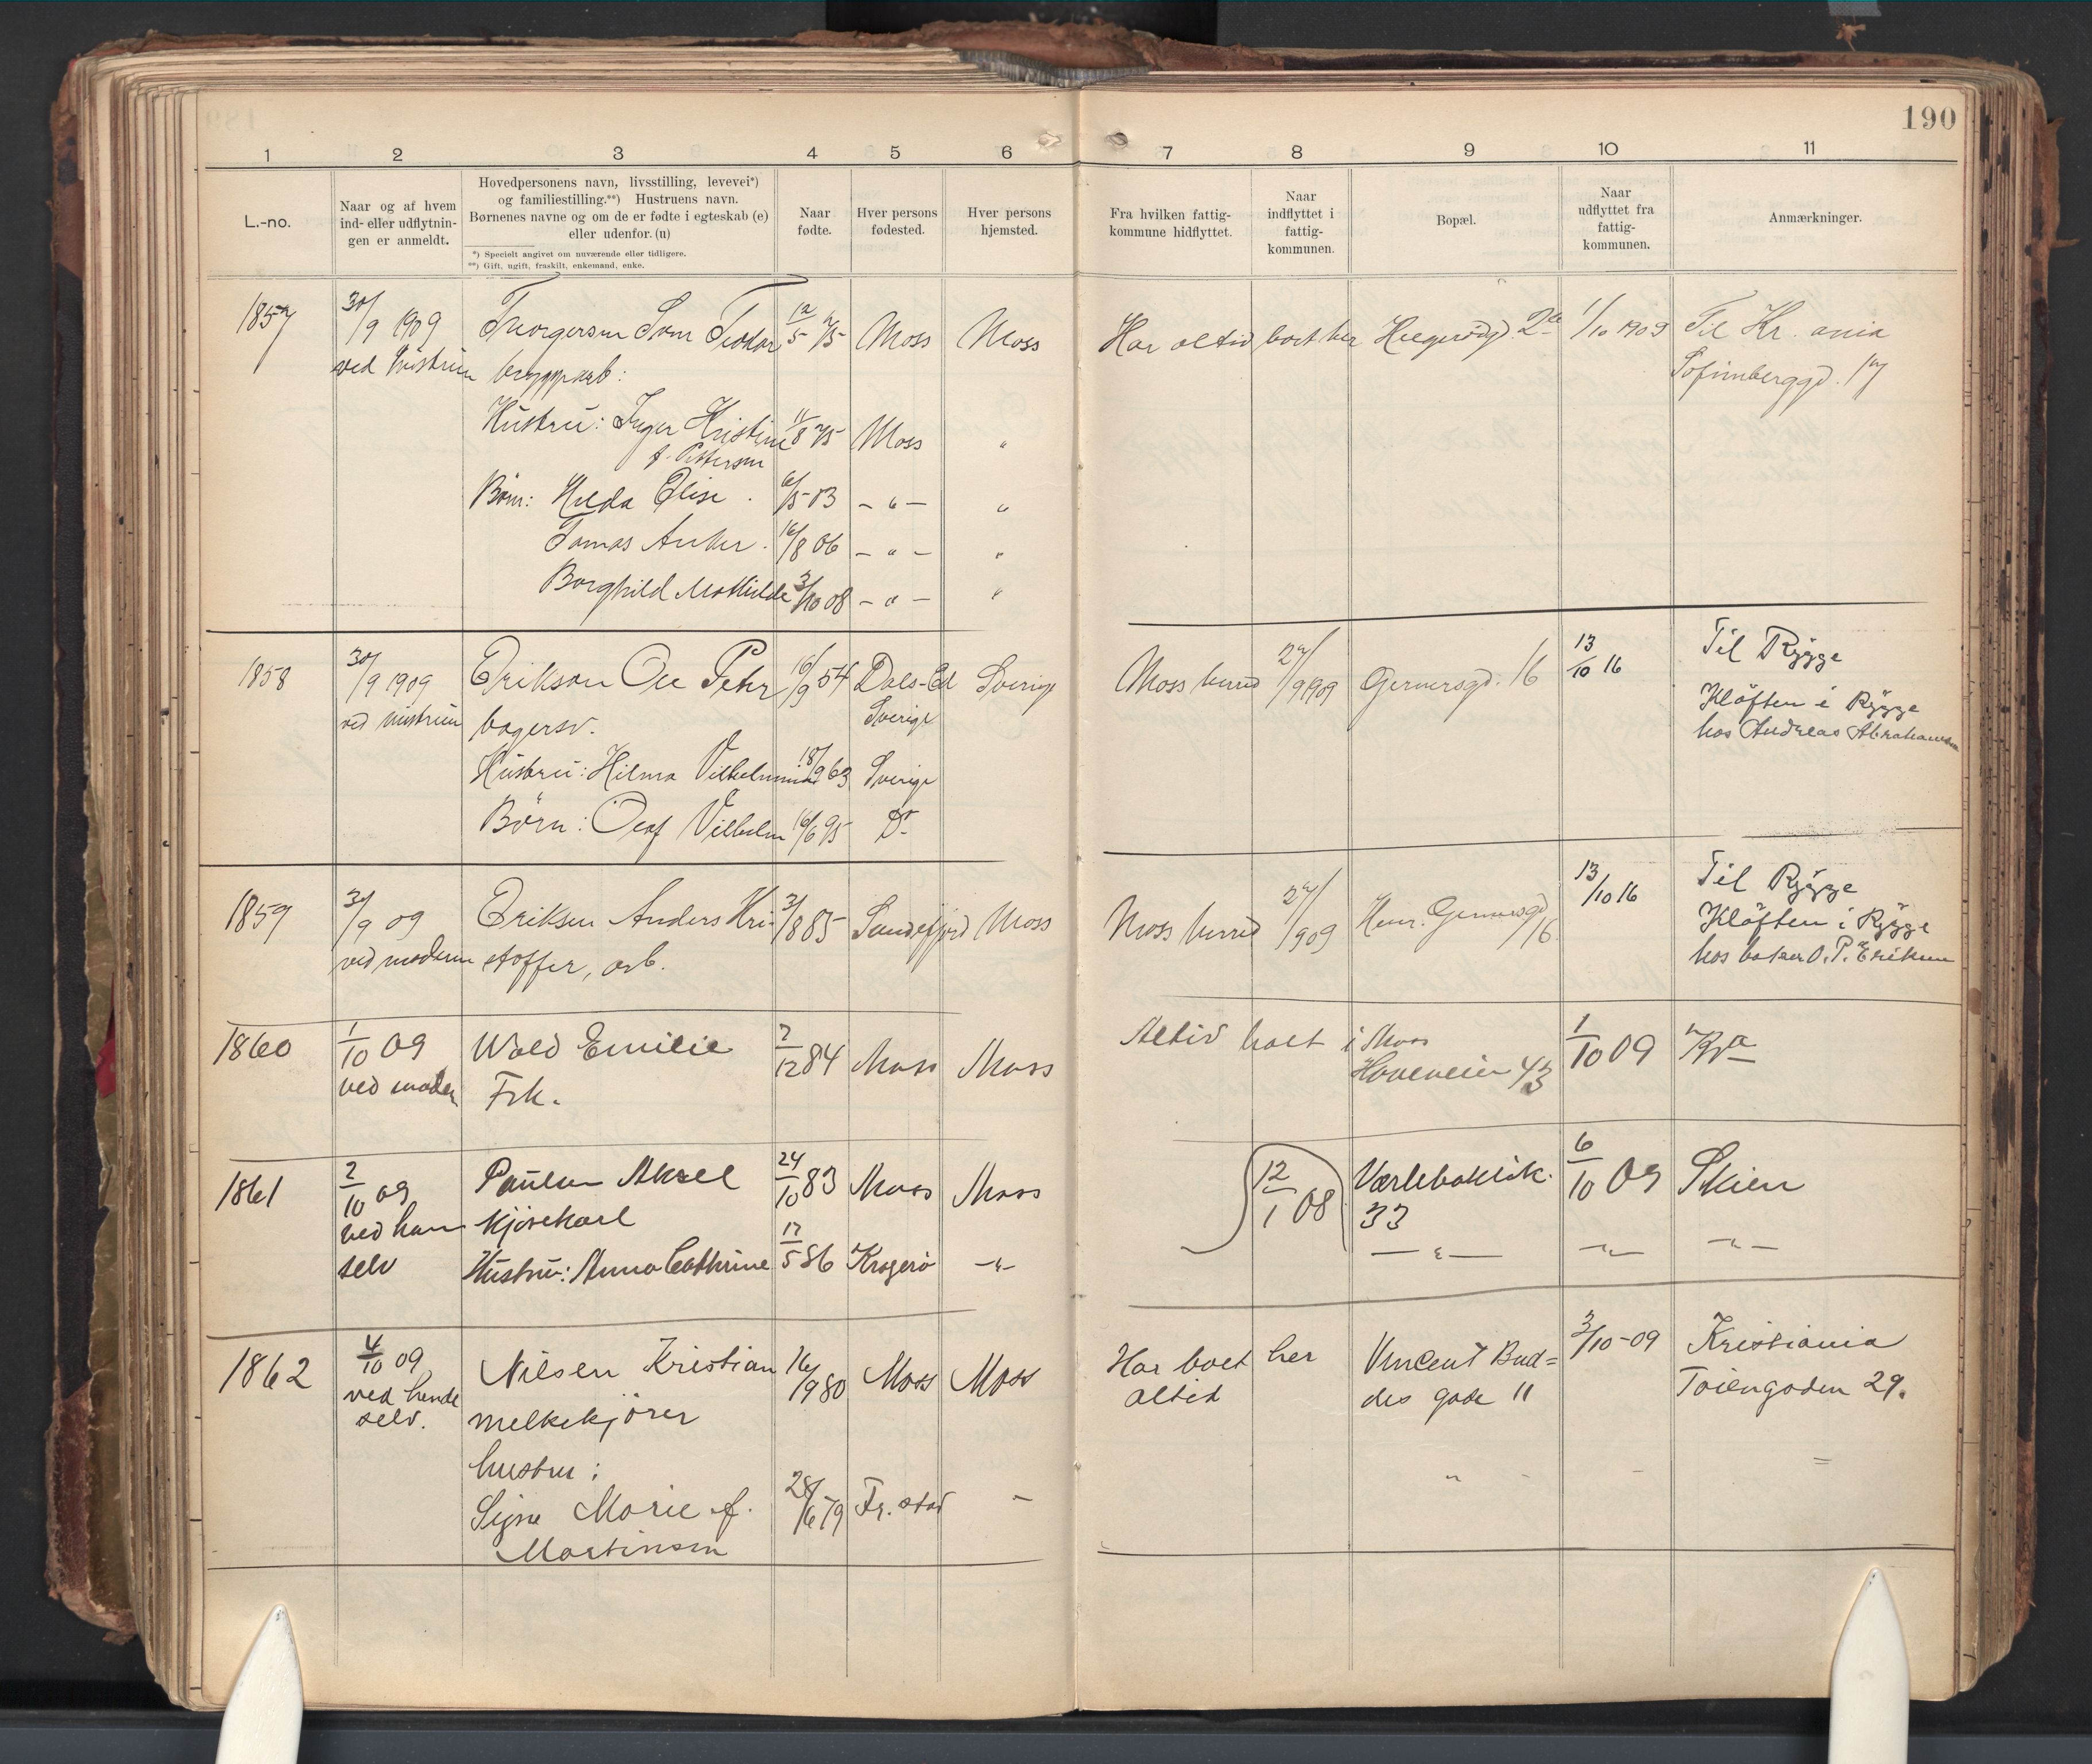 190
1 2 3 4 5 6 7 8 9 10 11
L.-no.
Naar og af hvem
ind- eller udflytnin-
gen er anmeldt.
Hovedpersonens navn, livsstilling, levevei*)
og familiestilling.**) Hustruens navn.
Børnenes navne og om de er fødte i egteskab (e)
eller udenfor. (u)
*) Specielt angivet om nuværende eller tidligere.
**) Gift, ugift, fraskilt, enkemand, enke.
Naar
fødte.
Hver persons
fødested.
Hver persons
hjemsted.
Fra hvilken fattig-
kommune hidflyttet.
Naar
indflyttet i
fattig-
kommunen.
Bopæl.
Naar
udflyttet fra
fattig-
kommunen.
Anmærkninger.
1857 30/9 1909 Torgersen Teodor 12/5 75 Moss Moss Har altid boet her Helgerødgd. 2a 1/10 1909 Til Kr. ania
ved Hustruen bryggearb: Sofienberggd. 17
Hustru: Inger Kristine 11/8 75 Moss "
f. Pettersen
Børn: Hilda Elise 6/5 03 - " - "
Tomas Anker. 16/8 06 - " - "
Borghild Mathilde 3/10 08 - " - "
1858 30/9 1909 Erikson Ole Peter 16/9 54 Dals-Ed Sverige Moss herred 27/9 1909 Gernersgd. 16 13/10 16 Til Rygge
ved hustruen bagersv. Sverige Kløften i Rygge
hos Andreas Abrahamsen
Hustru: Hilma Vilhelmina 18/9 63 Sverige
Børn: Olaf Vilhelm 16/6 95 Do
1859 30/9 09 Eriksen Anders Kri- 3/8 85 Sandefjord Moss Moss herred 27/9 09 Henr. Gernersgd 16 13/10 16 Til Rygge
ved moderen stoffer, arb. Kløften i Rygge
hos baker O. P. Eriksen
1860 1/10 09 Wold Emilie 2/12 84 Moss Moss Altid boet i Moss 1/10 09 Kra
ved moderen Frk. Hoveveien 43
1861 2/10 09 Paulsen Aksel 24/10 83 Moss Moss 12/1 08 Værlebakk. 33 6/10 09 Skien
ved ham selv kjørekarl
Hustru: Anna Cathrine 17/5 86 Kragerø - " - - " - - " - - " -
1862 4/10 09 Nilsen Kristian 14/9 80 Moss Moss Har boet her Vincent Bud= 3/10-09 Kristiania
ved hende melkekjører altid des gade 11 Tøiengaden 29.
selv.
hustru: " - =
Signe Marie f. 28/6 79 Fr. stad -
Martinsen